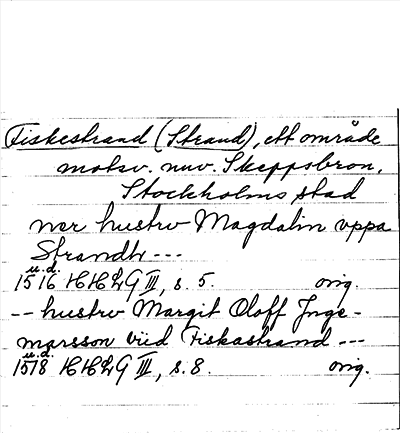 Fiskestrand (Strand), ett område
motsv. nuv. Skeppsbron,
Stockholms stad
ner hustrv Magdalin vppa
Strandh ---
u.d.
1516 HHLG III, s. 5. orig.
-- hustrv Margit Oloff Jnge-
marsson viid Fiskastrand ---
u.d.
1518 HHLG III, s. 8. orig.